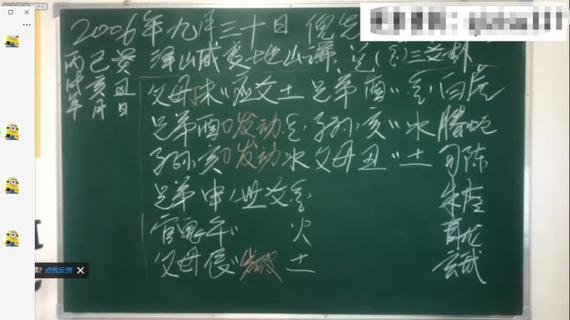 2006年九月三十日 倪先
丙 己 癸 泽山咸变地山谦
戌 亥 丑
年 月 日
父母未〃应爻土 兄弟酉〃金 白虎
兄弟酉〇发动金 子孙亥〃水 腾蛇
子孙亥〇发动水 父母丑〃土 勾陈
兄弟申 世爻金 朱雀
官鬼午〃 火 青龙
父母辰〃 土 玄武
点我反馈